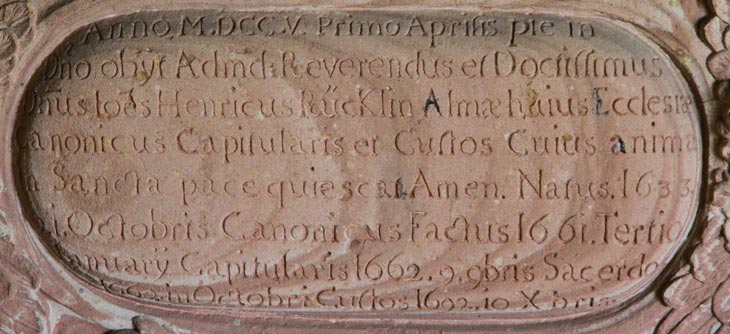 Anno, M.DCC.V. Primo Aprilis pie in
Dño obyt Admd: Reverendus et Doctissimus
Dnus Ioẽs Henricus Rücklin Almæ huius Ecclesiæ
Canonicus Capitularis et Custos Cuius anima
Sancta pace quiescat. Amen. Natus. 1633.
Octobris Canonicus Factus 1661. Tertio
anuarÿ Capitularis 1662. 9. 9bris Sacerdo
Octobri Custos 1692. 10 X bris